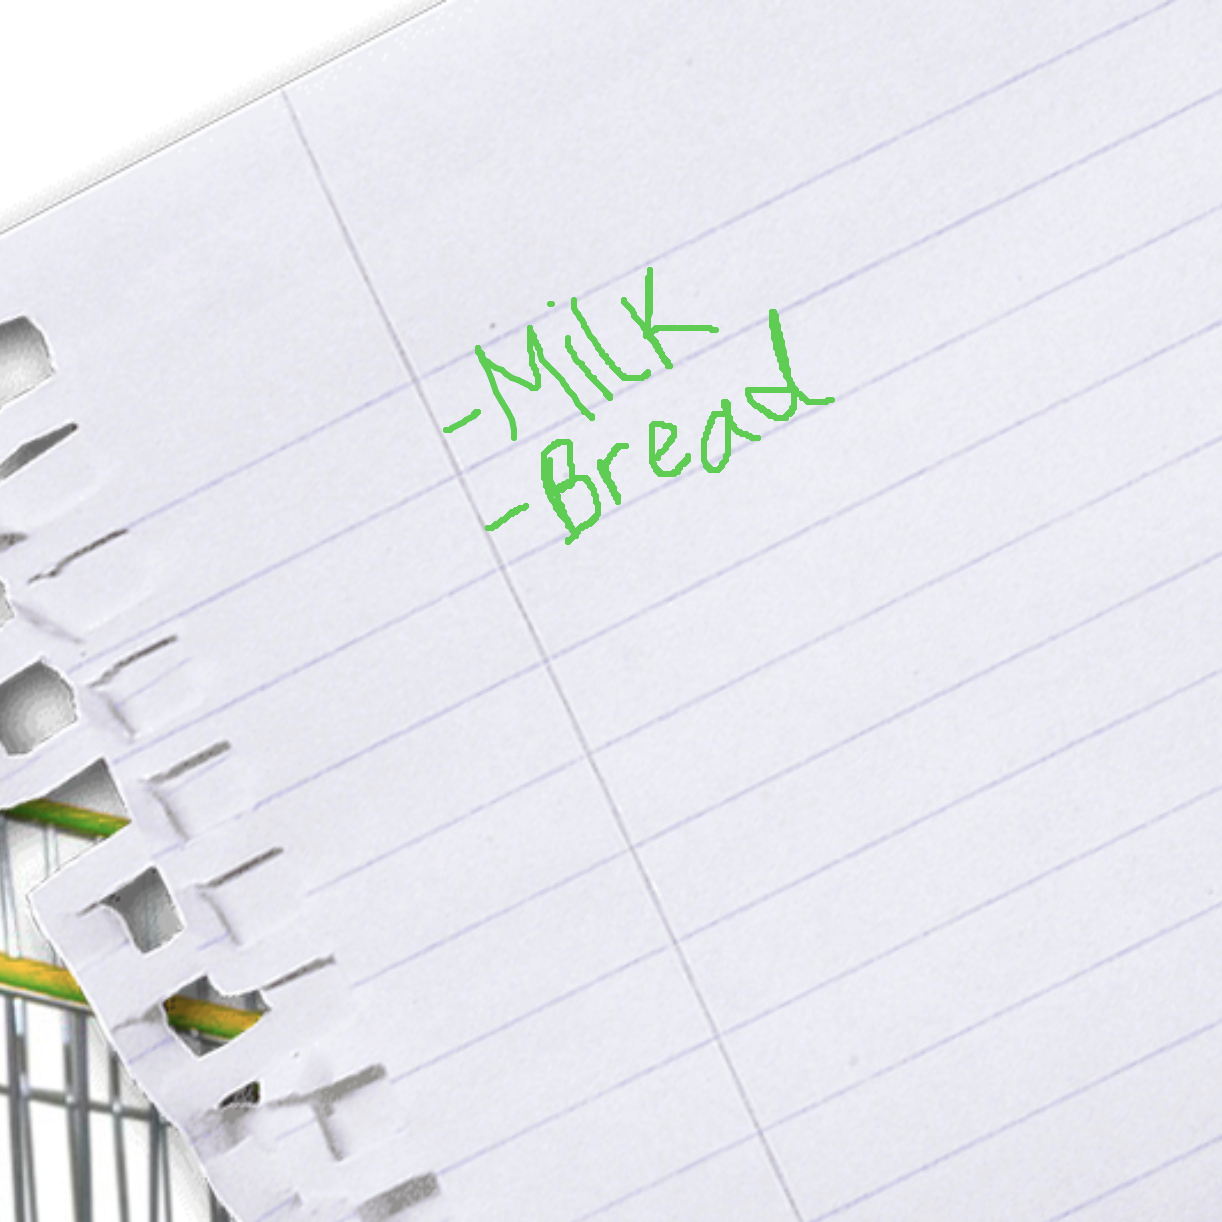 -Milk
-Bread